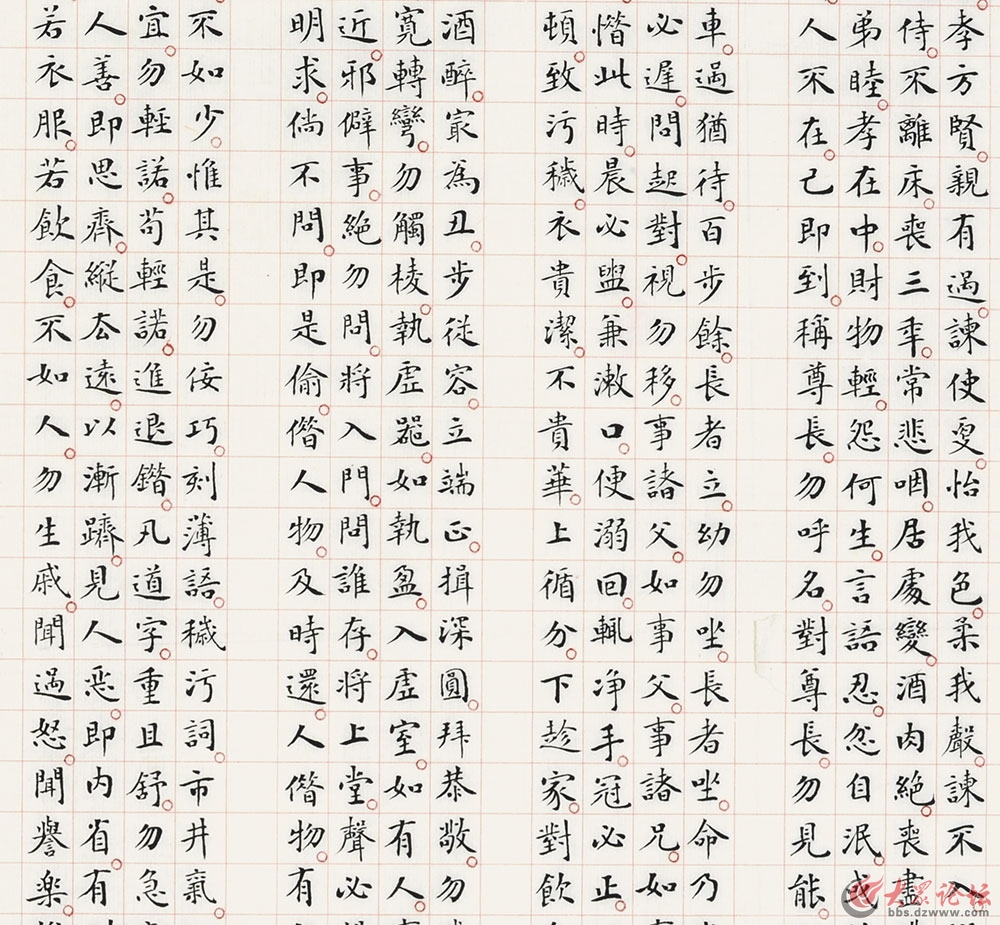 孝方賢。親有過。諫使更。怡我色。柔我聲。諫不入
侍。不離床。喪三年。常悲咽。居處變。酒肉絕。喪盡
弟睦。孝在中。財物輕。怨何生。言語忍。忿自泯。或
人不在。己即到。稱尊長。勿呼名。對尊長。勿見能。
車。過猶待。百步餘。長者立。幼勿坐。長者坐。命乃
必遲。問起對。視勿移。事諸父。如事父。事諸兄。如
惜此時。晨必盥。兼漱口。便溺回。輒净手。冠必正。
頓。致污穢。衣貴潔。不貴華。上循分。下趁家。對飲
酒醉。最為丑。步從容。立端正。揖深圓。拜恭敬。勿
寬轉彎。勿觸棱。執虛器。如執盈。入虛室。如有人。
近。邪僻事。絕勿問。將入門。問誰存。將上堂。聲必
明求。倘不問。即是偷。借人物。及時還。人借物。有
不如少。惟其是。勿佞巧。刻薄語。穢污詞。市井氣。
宜。勿輕諾。苟輕諾。進退錯。凡道字。重且舒。勿急
人善。即思齊。縱去遠。以漸躋。見人惡。即內省。有
若衣服。若飲食。不如人。勿生戚。聞過怒。聞譽樂。
大眾论坛
bbs.dzwww.com